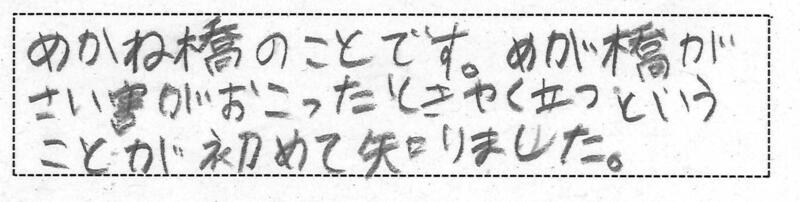 めかね橋のことです。めが橋が
さい害がおこったときやく立つという
ことが初めて知りました。